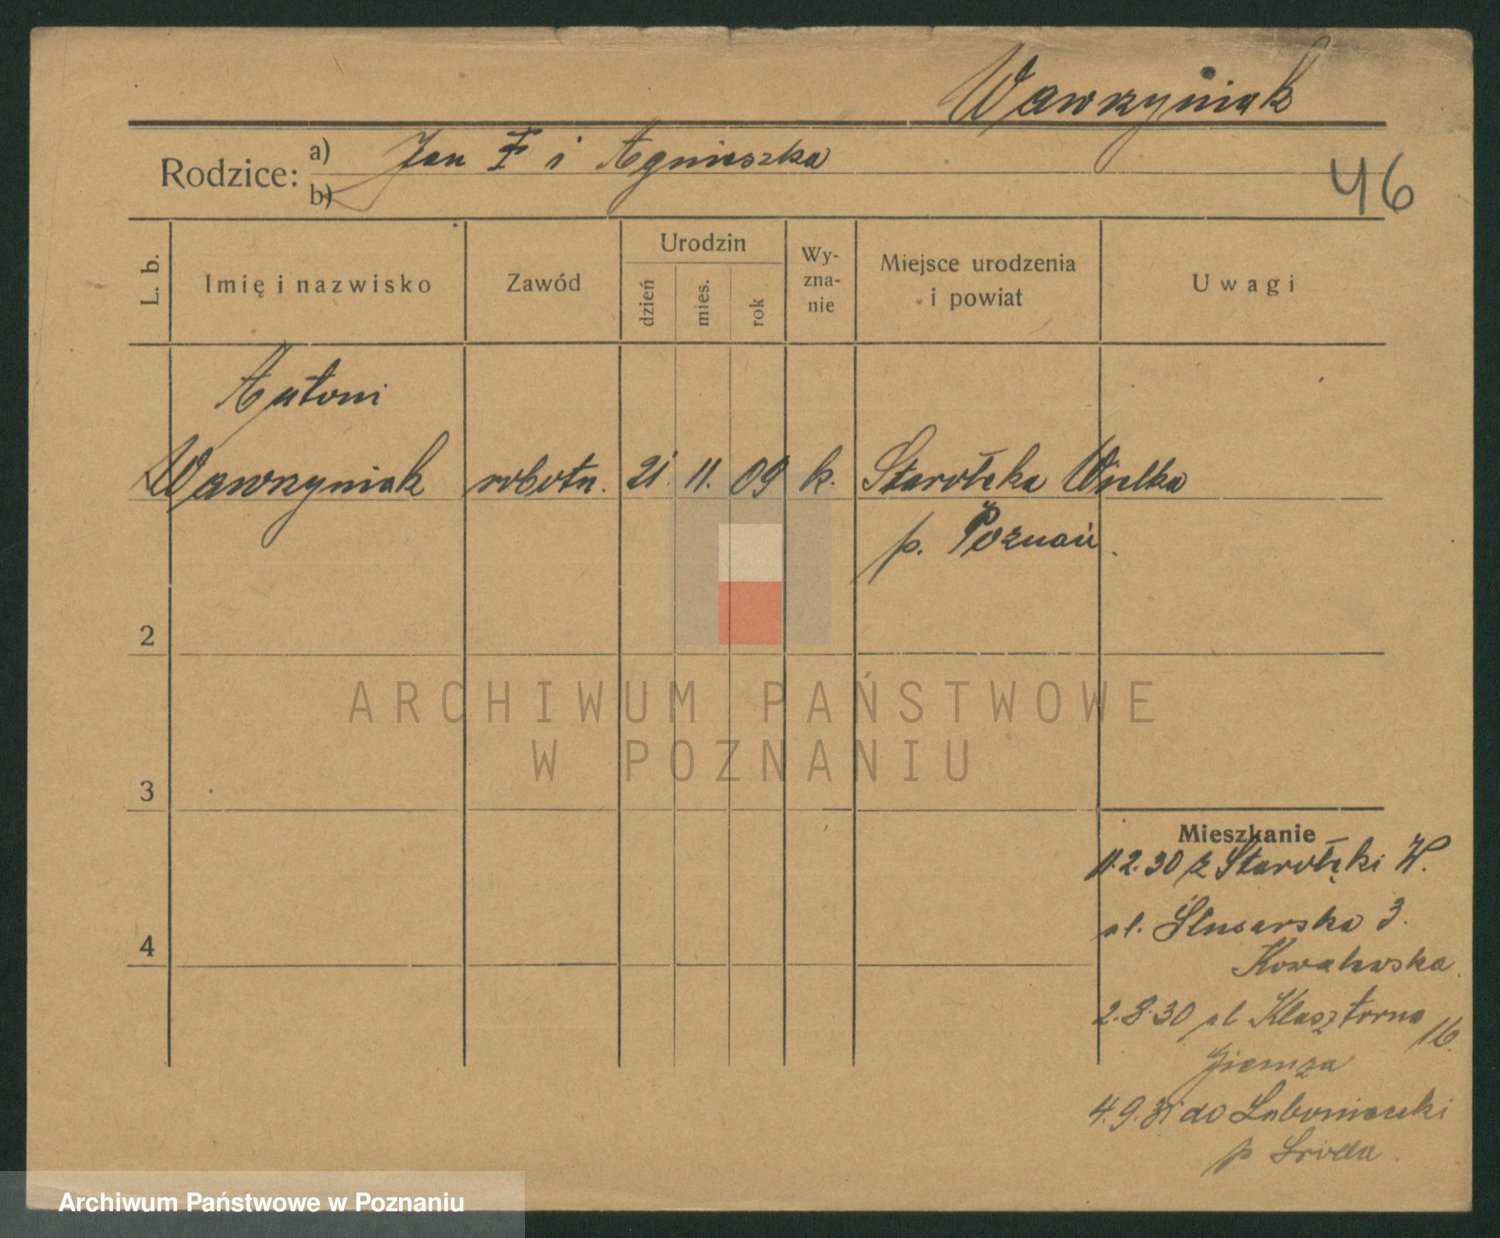 Wawrzyniak
Rodzice: a) Jan I i Agnieszka
b)
46
L. b. Imię i nazwisko Zawód Urodzin dzień mies. rok Wy-zna-nie Miejsce urodzenia i powiat Uwagi
Antoni
Wawrzyniak robotn. 21. 11. 09 k. Starołęka Wielka
p. Poznań.
2
3
4
ARCHIWUM PAŃSTWOWE
W POZNANIU
Mieszkanie
11.2.30 z Starołęki W.
ul. Ślusarska 3.
Kowalewska.
2.8.30 ul Klasztorna 16.
4.9.31 do
p Środa.
Archiwum Państwowe w Poznaniu